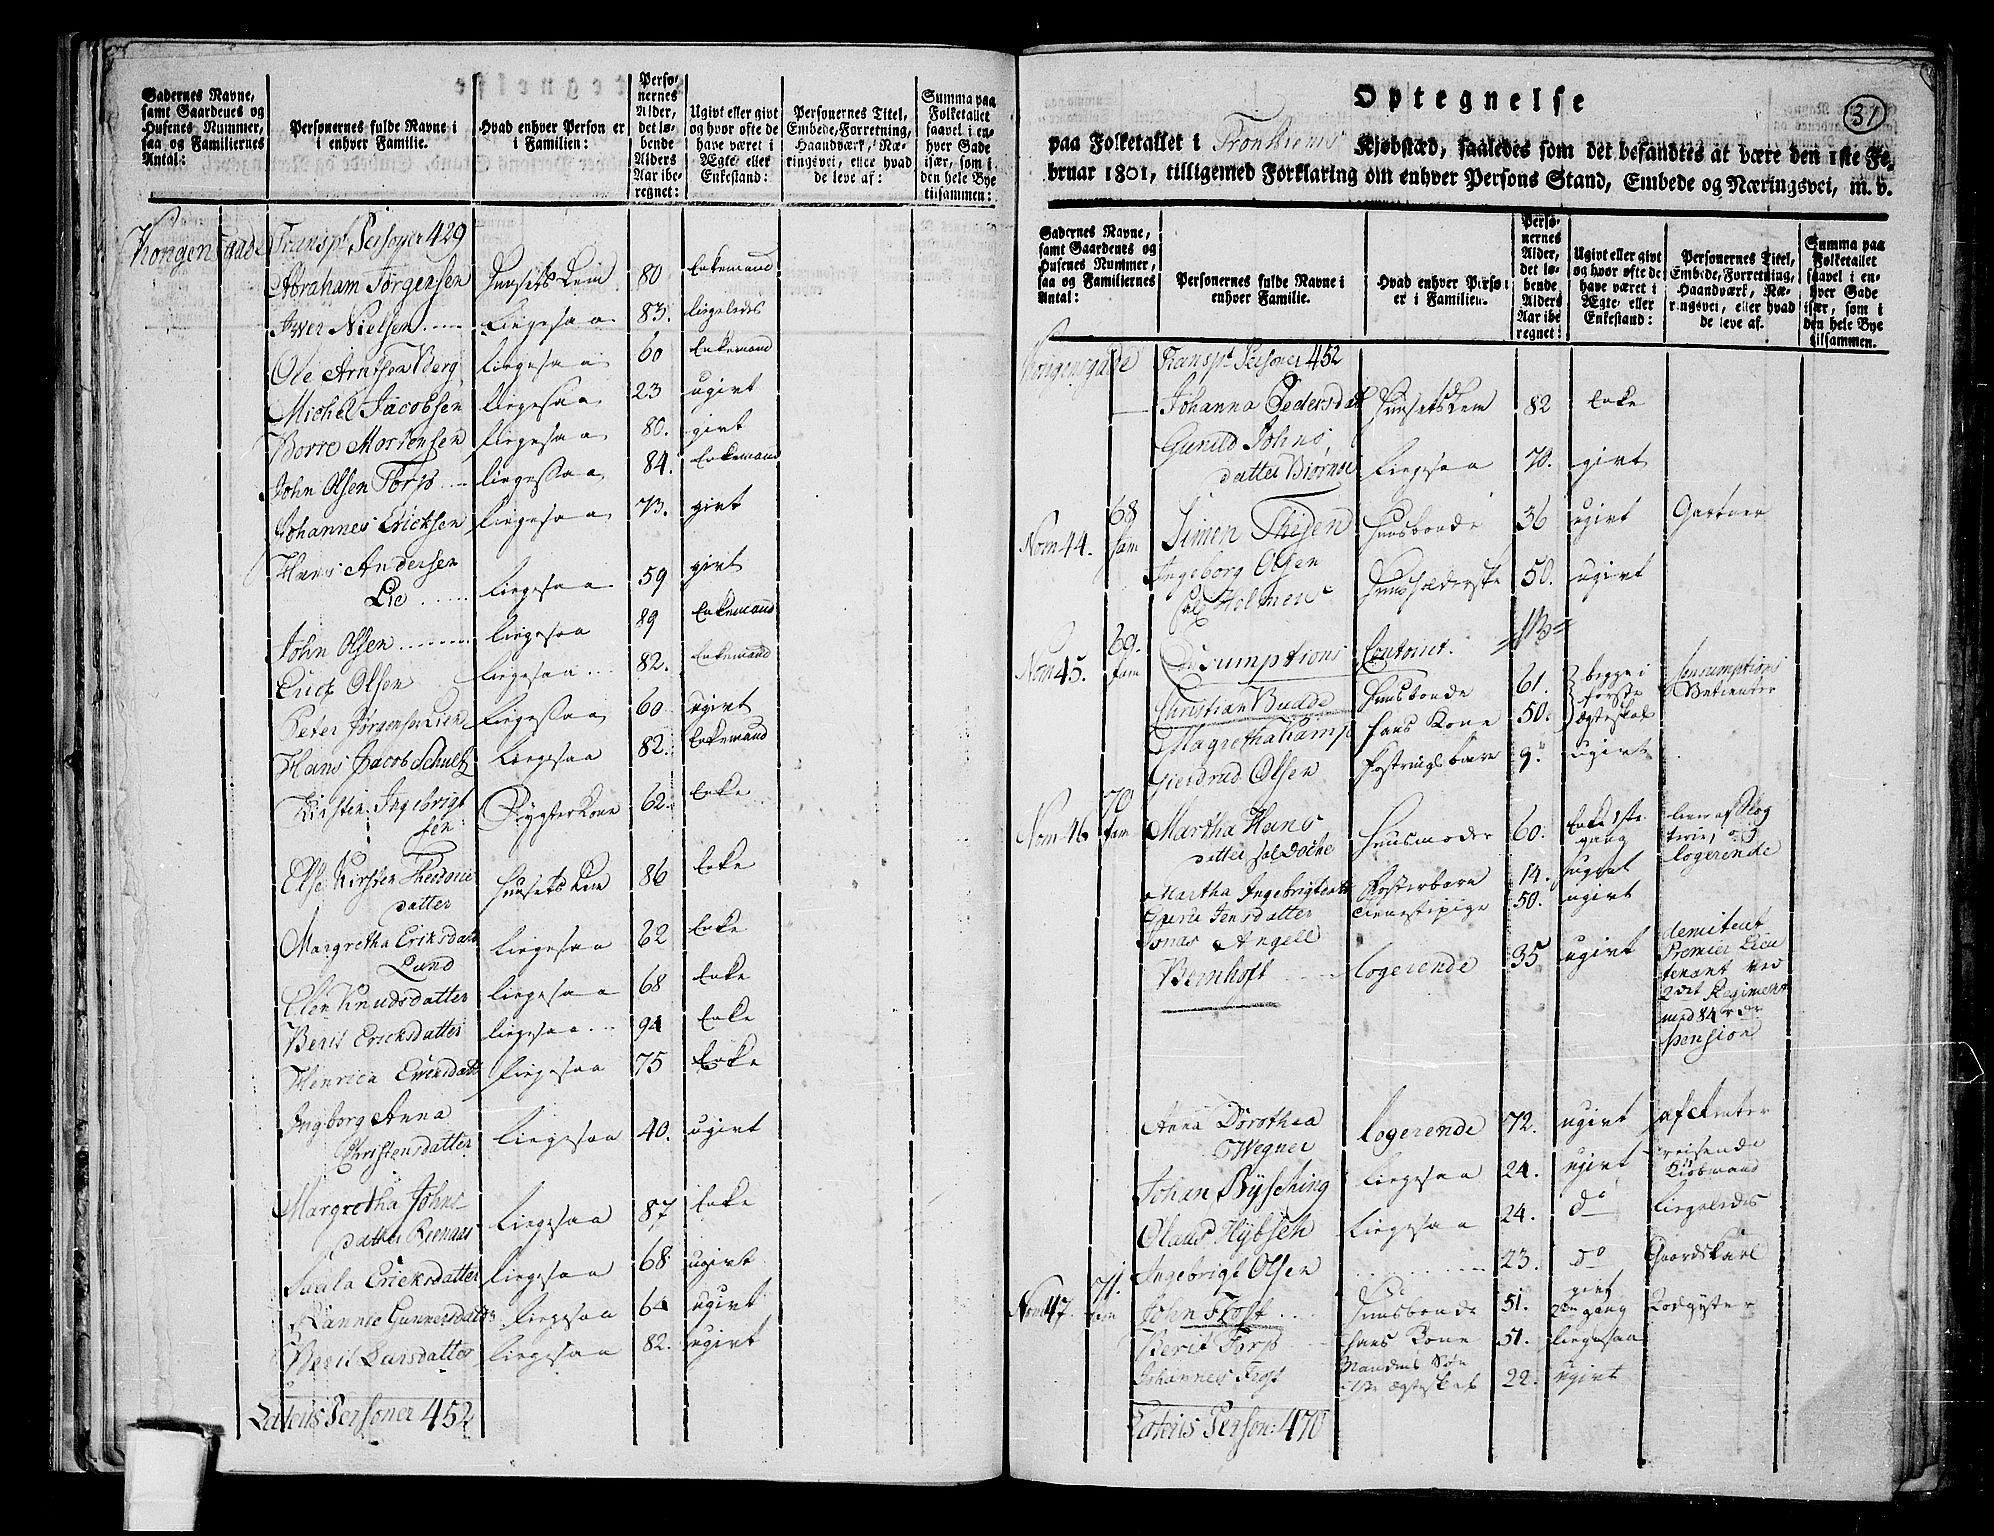 Gadernes Navne,
samt Gaardenes og
Husenes Nummer,
saa og Familiernes
Antal:
Personernes fulde Navne i
enhver Familie.
Hvad enhver Person er
i Familien:
Perso-
nernes
Alder,
det lø-
bende
Alders
Aar ibe-
regnet:
Ugivt eller givt
og hvor ofte de
have været i
Ægte- eller
Enkestand:
Personernes Titel,
Embede, Forretning,
Haandværk, Næ-
ringsvei, eller hvad
de leve af:
Summa paa
Folketallet
saavel i en-
hver Gade
især, som i
den hele Bye
tilsammen:
Kongensgade Transpt Personer 429
Abraham Jørgensen Huusets Lem 80 Enkemand
Iver Nielsen ligesaa 83. ligeledes
Ole Arntsen Berg ligesaa 60 Enkemand
Michel Jacobsen ligesaa 23 ugivt
Borre Mortensen ligesaa 80. givt
John Olsen Torp ligesaa 84. Enkemand
Johannes Ericksen ligesaa 73. givt
Hans Andersen
Lie ligesaa 59 givt
John Olsen ligesaa 89 Enkemand
Olsen ligesaa 82. Enkemand
Peter Jørgensen ligesaa 60 ugivt
Hans Jacob Schultz ligesaa 82. Enkemand
Kirsten Ingebrigt
sen 62. Enke
Else Kirsten
datter Huusets Lem 86 Enke
Margretha Eriksdatter
Lund ligesaa 62 Enke
Elen Knudsdatter ligesaa 68 Enke
Berit Ericksdatter ligesaa 94 Enke
Henrica ligesaa 75 Enke
Ingborg Anna
Christensdatter ligesaa 40. ugivt
Margretha Johns
datter ligesaa 87. Enke
Ericksdatter ligesaa 68. ugivt
Rannie Gunnersdatter ligesaa 64 ugivt
Berit Larsdatter ligesaa 82. ugivt
Lateris Personer 452
31
Optegnelse
paa Folketallet i Tronhiems Kjøbstæd, saaledes som det befandtes at være den 1ste Fe-
bruar 1801, tilligemed Forklaring om enhver Persons Stand, Embede og Næringsvei, m. v.
Gadernes Navne,
samt Gaardenes og
Husenes Nummer,
saa og Familiernes
Antal:
Personernes fulde Navne i
enhver Familie.
Hvad enhver Perso-
er i Familien:
Perso-
nernes
Alder,
det lø-
bende
Alders
Aar ibe-
regnet:
Ugivt eller givt
og hvor ofte de
have været i
Ægte- eller
Enkestand:
Personernes Titel,
Embede, Forretning,
Haandværk, Næ-
ringsvei, eller hvad
de leve af.
Summa paa
Folketallet
saavel i en-
hver Gade
især, som i
den hele Bye
tilsammen.
Kongensgade Transpt Personer 452
Johanna Pedersdat Huusets Lem 82 Enke
Gunild Johns
datter Biørnøe ligesaa 70. givt
Nom 44. 68 fam Simen Thesen Huusbonde 36 ugivt Gartner
Ingeborg Olsen
sal Holmens Huusholderske 50. ugivt
Nom 45. 69. fam Consumptions Contoiret.
Christian Budde Huusbonde 61. begge i Consumptions
Magretha Kamp hans Kone 50. første Betienter
Ægteskab
Giertrud Olsen Fostringsbarn 9. ugivt
Nom 46 70 fam Martha Hans
datter sal Huusmoder 60. Enke 1ste
gang
logerende
Martha Ingebrigtdatter Fosterbarn 14. ugivt
Jensdatter tienestepige 50. ugivt
Jonas Angell
Bernhoft logerende 35 ugivt demitent
Premier Lieu
tenant ved
2det Regiment
med 84 rdr
pension
Anna Dorothea
Wegner logerende 72. ugivt
Johan Bysching ligesaa 24. ugivt reisende
Kiøbmand
Claus Hybsch ligesaa 24. do ligeledes
Ingebrigt Olsen 23. do Gaardskarl
Nom 47. 71. fam John Frost Huusbonde 51. givt
2den gang Rodgyster
Berit Torp hans Kone 51. ligesaa
Johannes Frost Mandens Søn
Ægteskab 22. ugivt
Lateris Person: 470